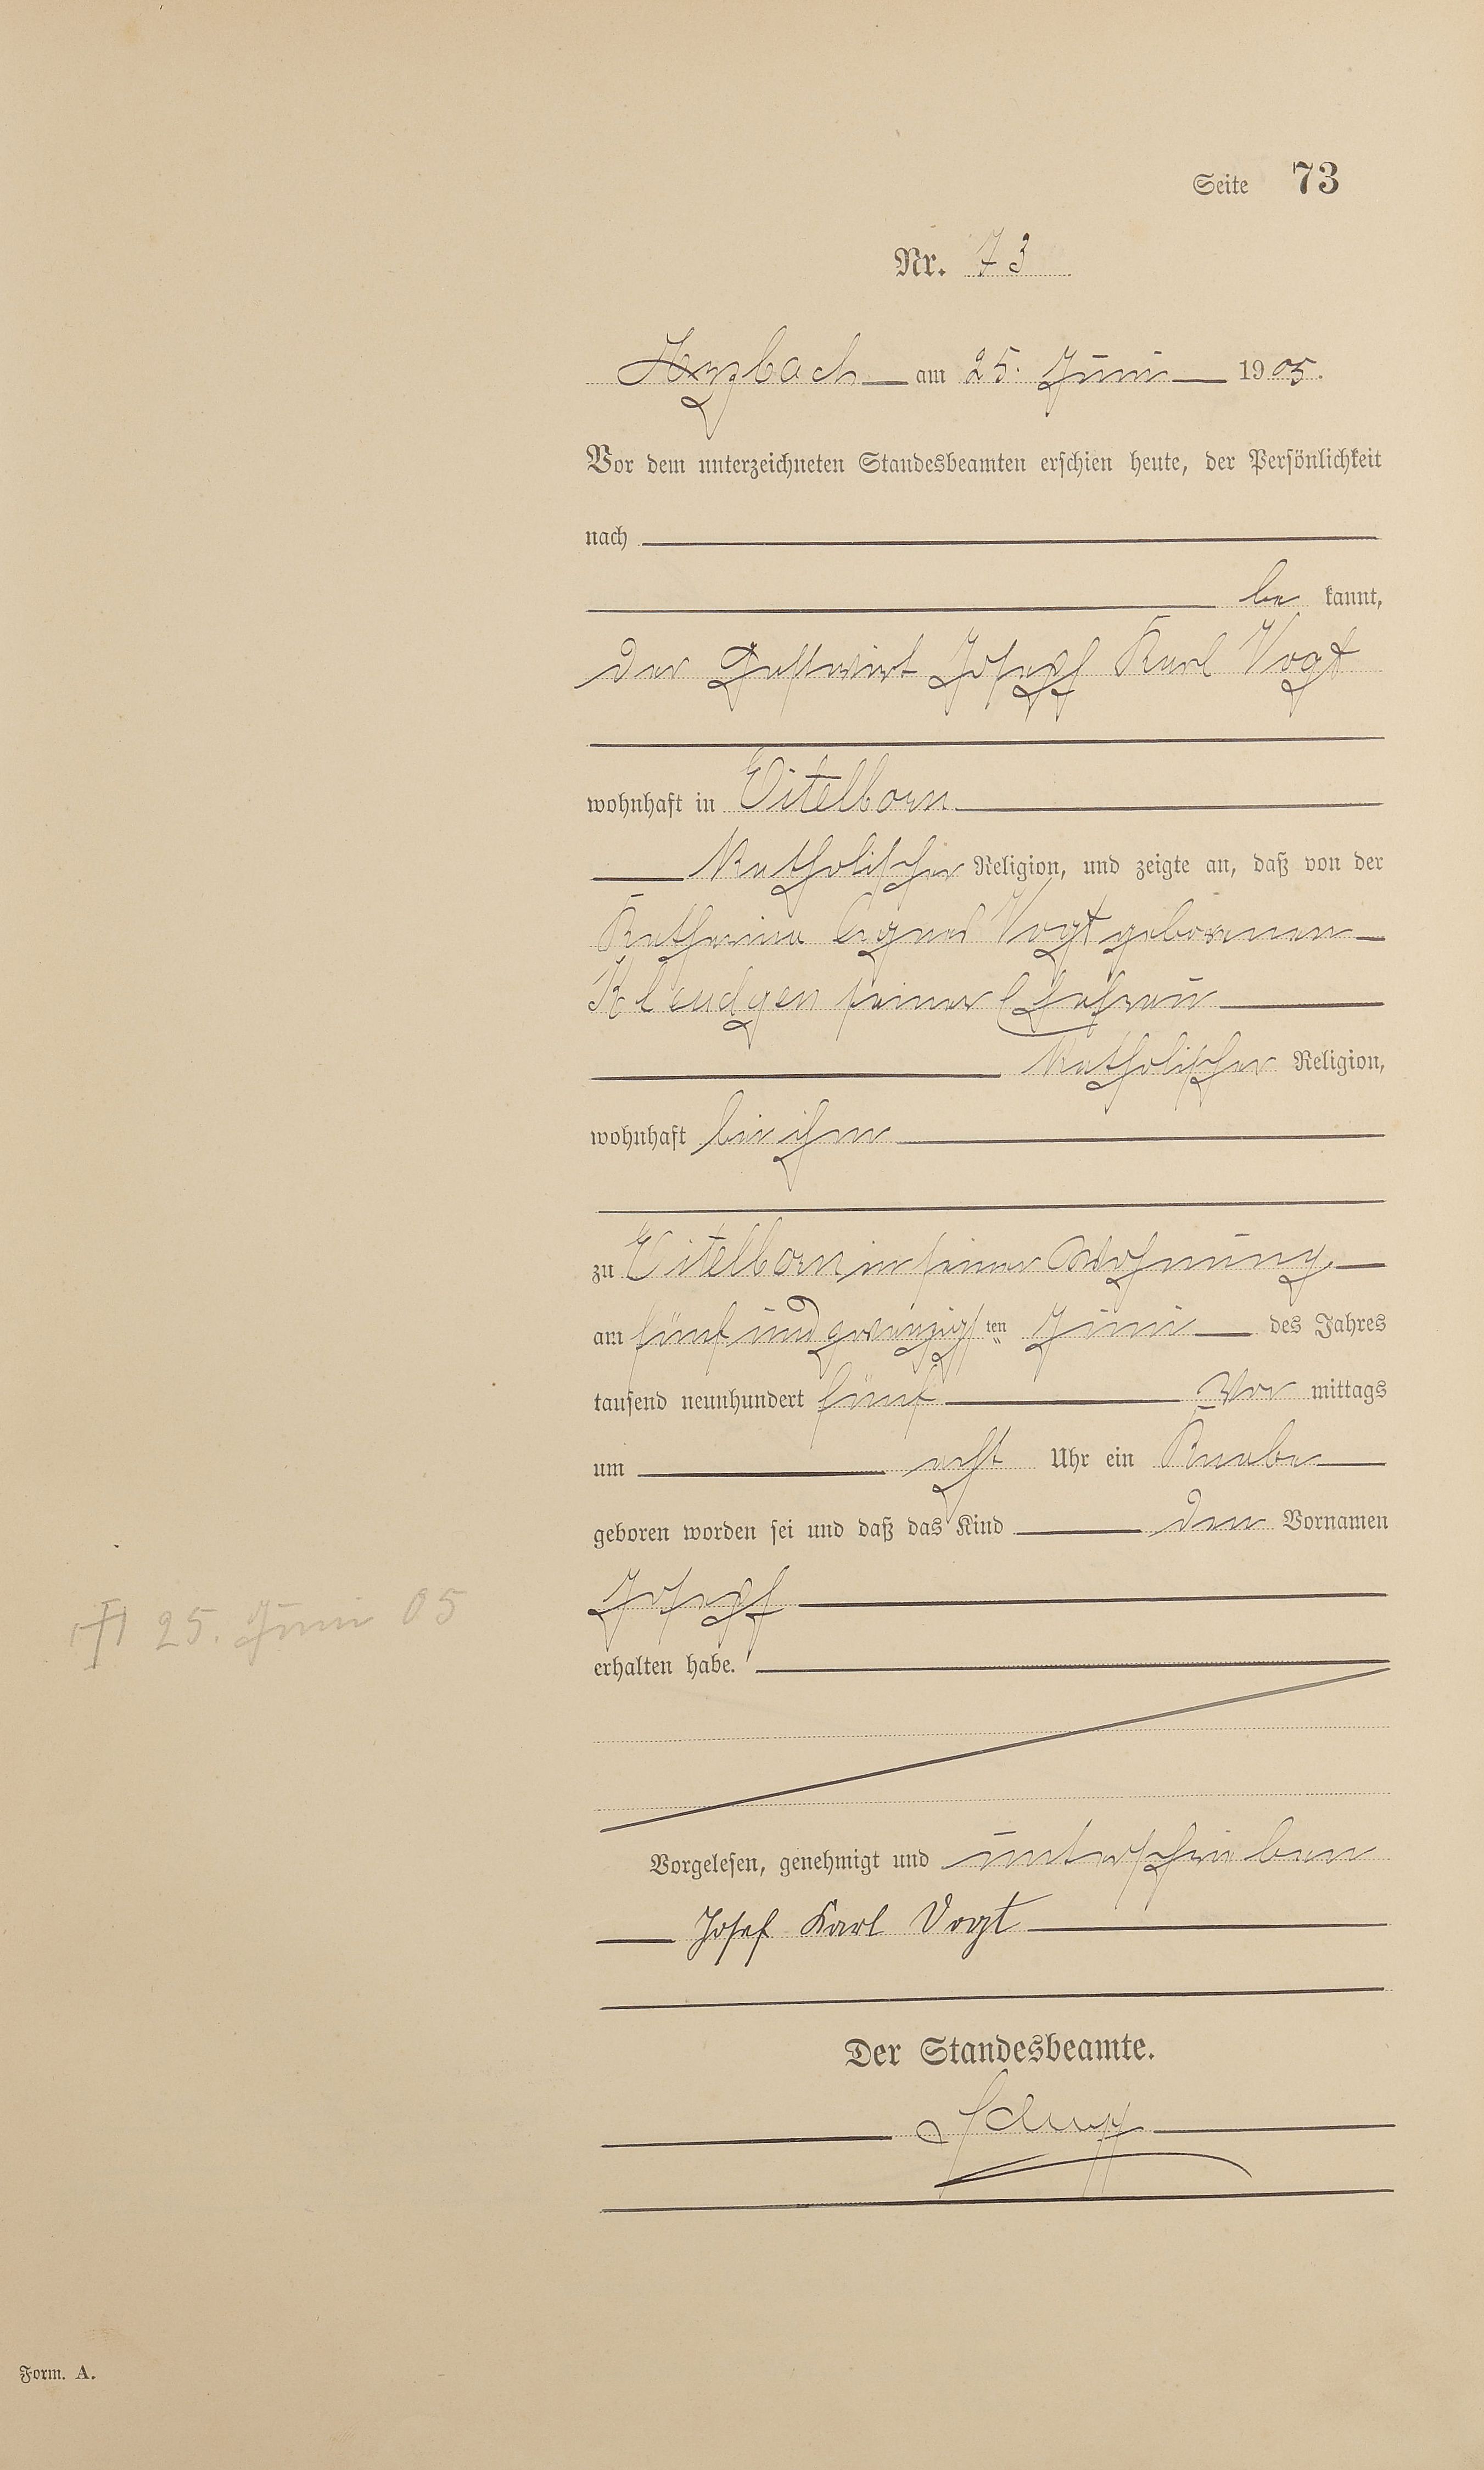 Seite 73
Nr. 73
Arzbach am 25. Juni 1905.
Vor dem unterzeichneten Standesbeamten erschien heute, der Persönlichkeit
nach
be kannt,
der Gastwirt Joseph Karl Vogt
wohnhaft in Eitelborn
Katholischer Religion, und zeigte an, daß von der
Katharina Agnes Vogt geborenen
Kleudgen seiner Ehefrau
Katholischer Religion,
wohnhaft bei ihm
zu Eitelborn in seiner Wohnung
am fünf und zwanzigsten Juni des Jahres
tausend neunhundert fünf Vor mittags
um acht Uhr ein Knabe
geboren worden sei und daß das Kind den Vornamen
Joseph
† 25. Juni 05
erhalten habe.
Vorgelesen, genehmigt und unterschrieben
Josef Karl Vogt
Der Standesbeamte.
Form. A.